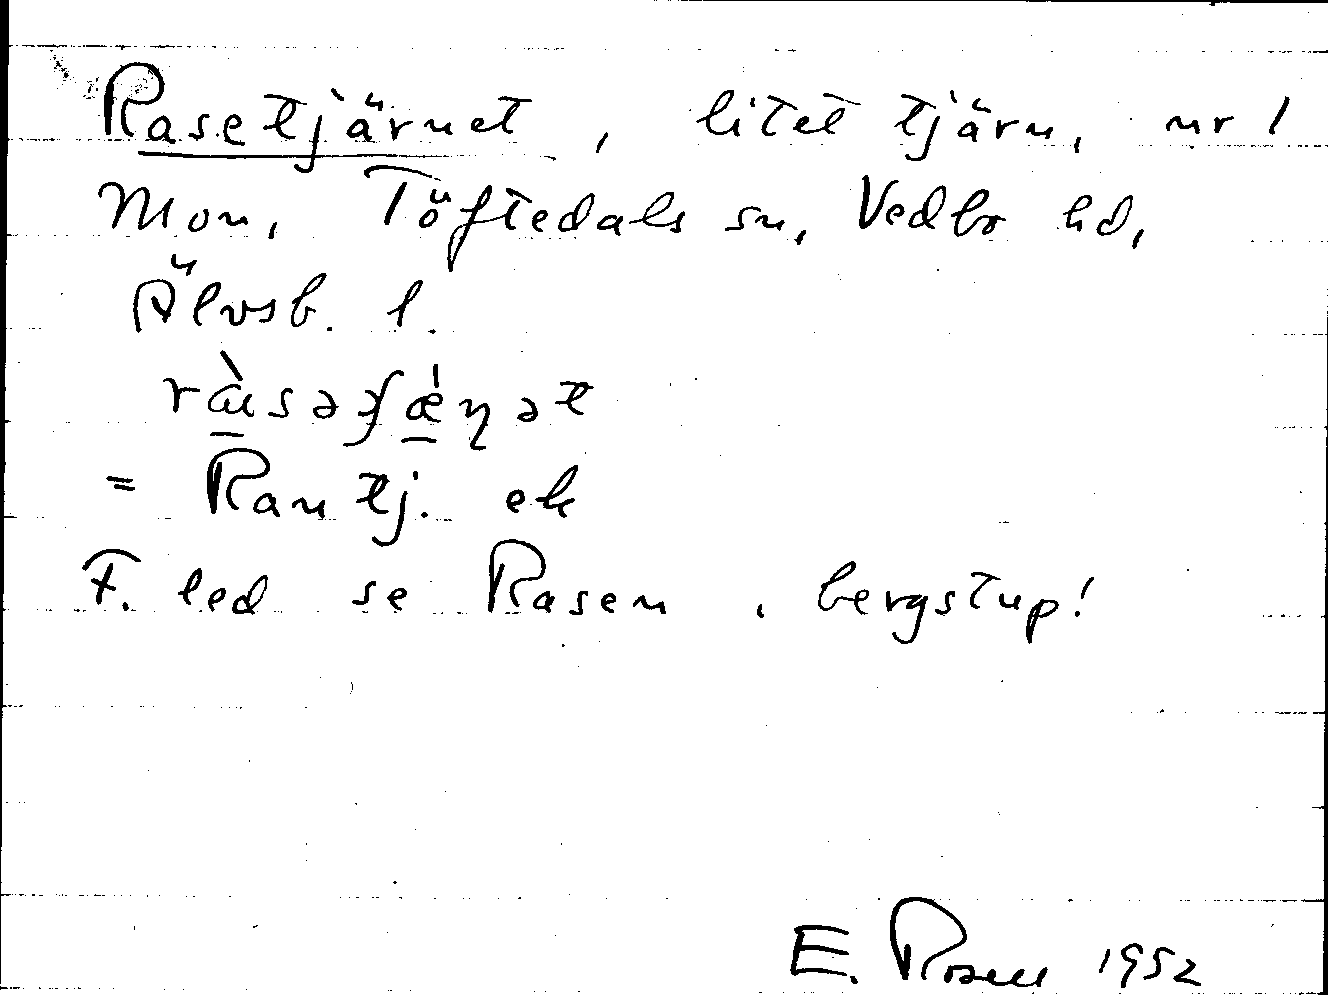 Rasetjärnet, litet tjärn, nr 1
Mon, Töftedals sn, Vedbo hd,
Älvsb. l.
= Rantj. ek
F. led se Rasen, bergstup!
E. Rosell 1952